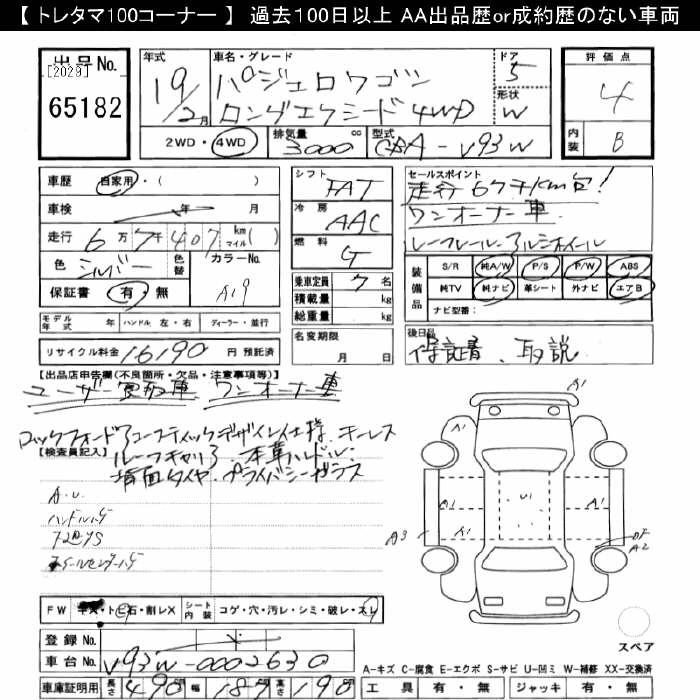 【 トレタマ100コーナー 】 過去100日以上 AA出品歴or成約歴のない車両
出品No.
[2029]
65182
年式
19/2月
車名・グレード
パジェロワゴン
ロングエクシード4WD
ドア
5
形状
W
評価点
4
内装
B
2WD・4WD
排気量
3000
cc
型式
CBA-V93W
車歴 自家用・( )
車検 年 月
走行 6万7千407 km マイル( )
色 シルバー
色替
カラーNo.
A19
保証書 有・無
モデル年式 年 ハンドル 左・右 ディーラー・並行
リサイクル料金 16190 円 預託済
シフト
FAT
冷房
AAC
燃料
G
乗車定員 7 名
積載量 kg
総重量 kg
名変期限
月 日
セールスポイント
走行67千km台!
ワンオーナー車
ルーフレール・アルミホイール
装備品
S/R 純A/W P/S P/W ABS
純TV 純ナビ 革シート 外ナビ エアB
ナビ型番:
後日品
保証書、取説
【出品店申告欄(不良箇所・欠品・注意事項等)】
ユーザー買取車 ワンオーナー車
ロックフォードアコースティックデザイン仕様、キーレス
ルーフキャリア、本革ハンドル・
背面タイヤ、プライバシーガラス
【検査員記入】
A.U.
ハンドルハゲ
下廻りS
ホイールセンターハゲ
A1
A1
U1
A1
A3
A1
A2
A1
スペア
FW キズ・トビ石・割レX
シート内装 コゲ・穴・汚レ・シミ・破レ・スレ
登録No.
車台No. V93W-0002630
車庫証明用 長さ 490 幅 187 高さ 190
A-キズ C-腐食 E-エクボ S-サビ U-凹ミ W-補修 XX-交換済
工具 有・無 ジャッキ 有・無